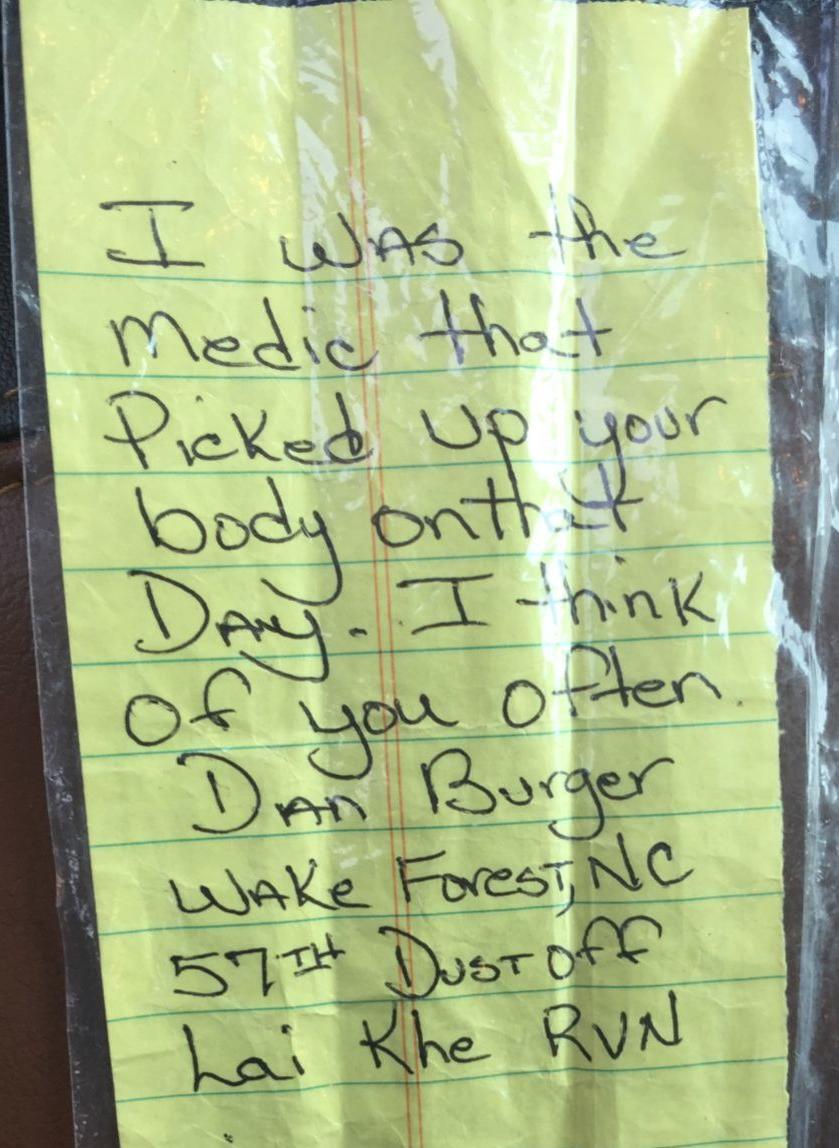 I WAS the
Medic that
Picked up your
body onthat
DAy. I think
of you often.
DAn Burger
WAKe Forest, NC
57TH DUST Off
Lai Khe RVN